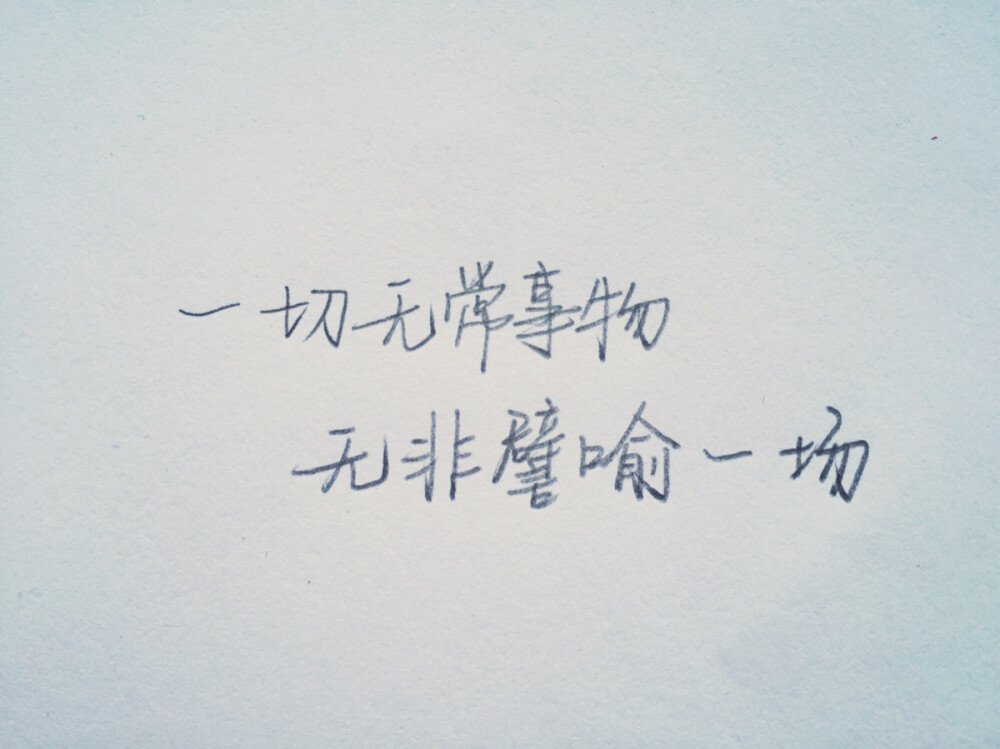 一切无常事物
无非譬喻一场